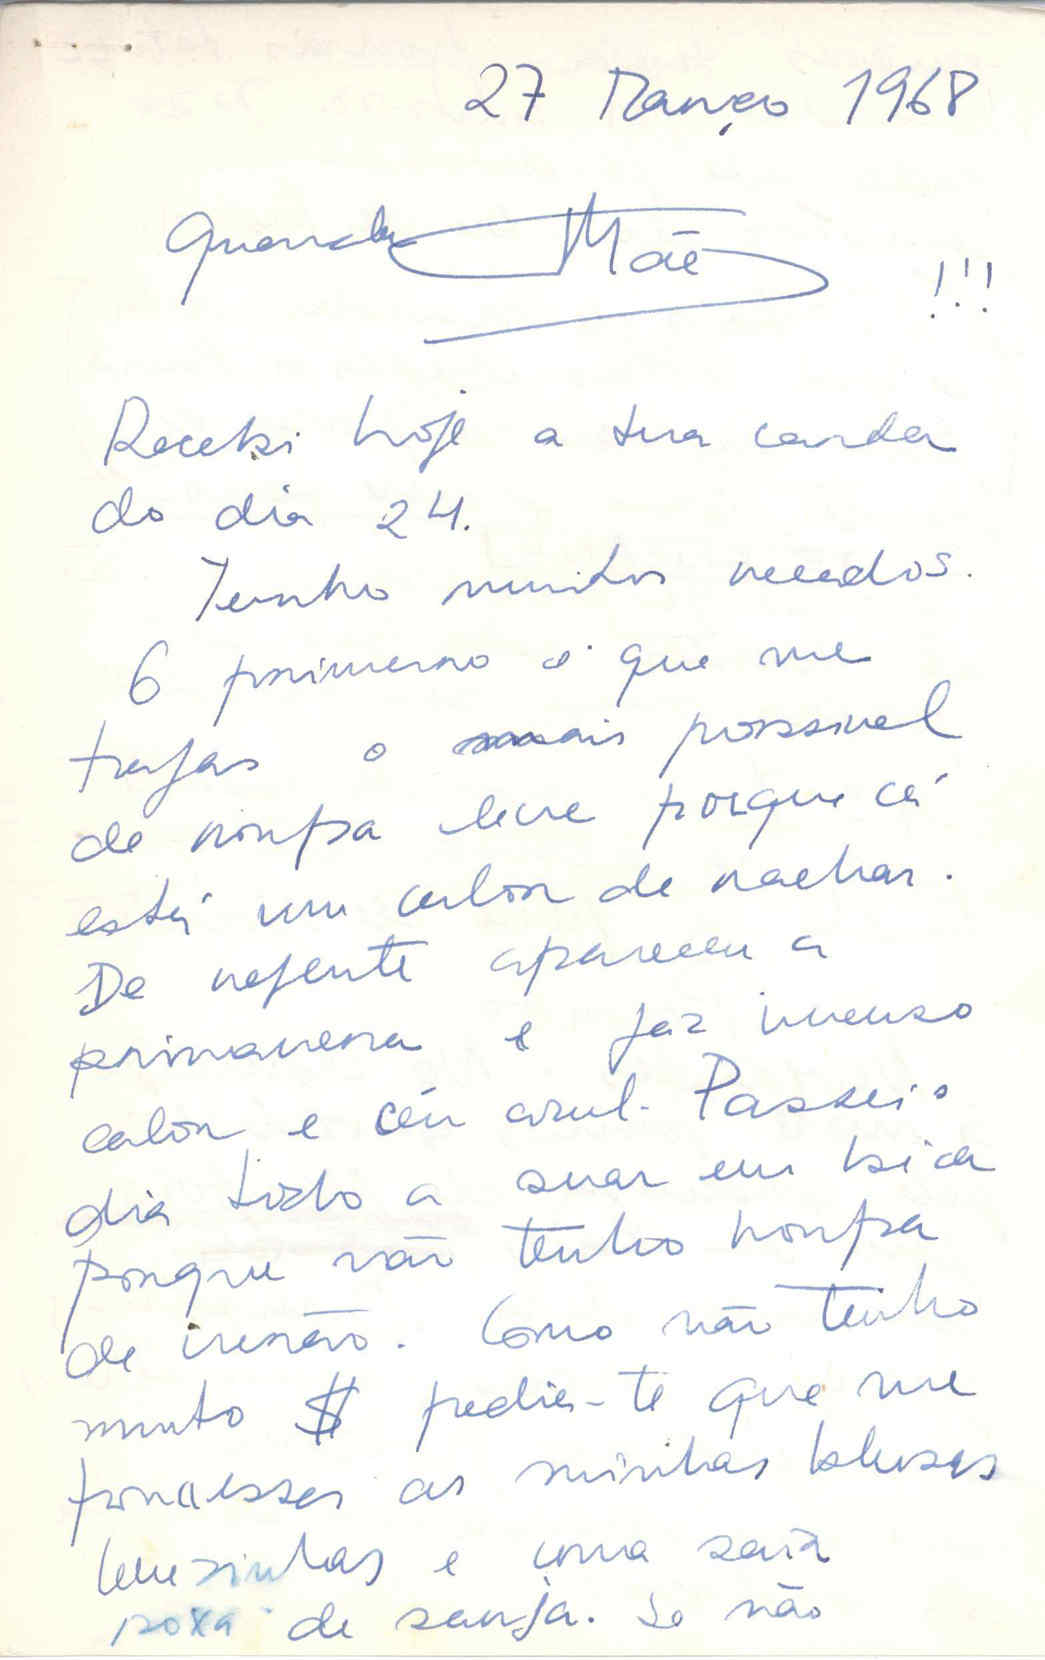 27 Março 1968
Querida Mãe !!!
Recebi hoje a tua carta
do dia 24.
Tenho muitos recados.
O primeiro é que me
tragas o mais possivel
de roupa leve porque cá
está um calor de rachar.
De repente apareceu a
primavera e faz imenso
calor e céu azul. Passei o
dia todo a suar em bica
porque não tenho roupa
de verão. Como não tenho
muito $ pedia-te que me
trouxesses as minhas blusas
levezinhas e uma saia
roxa de sarja. Se não